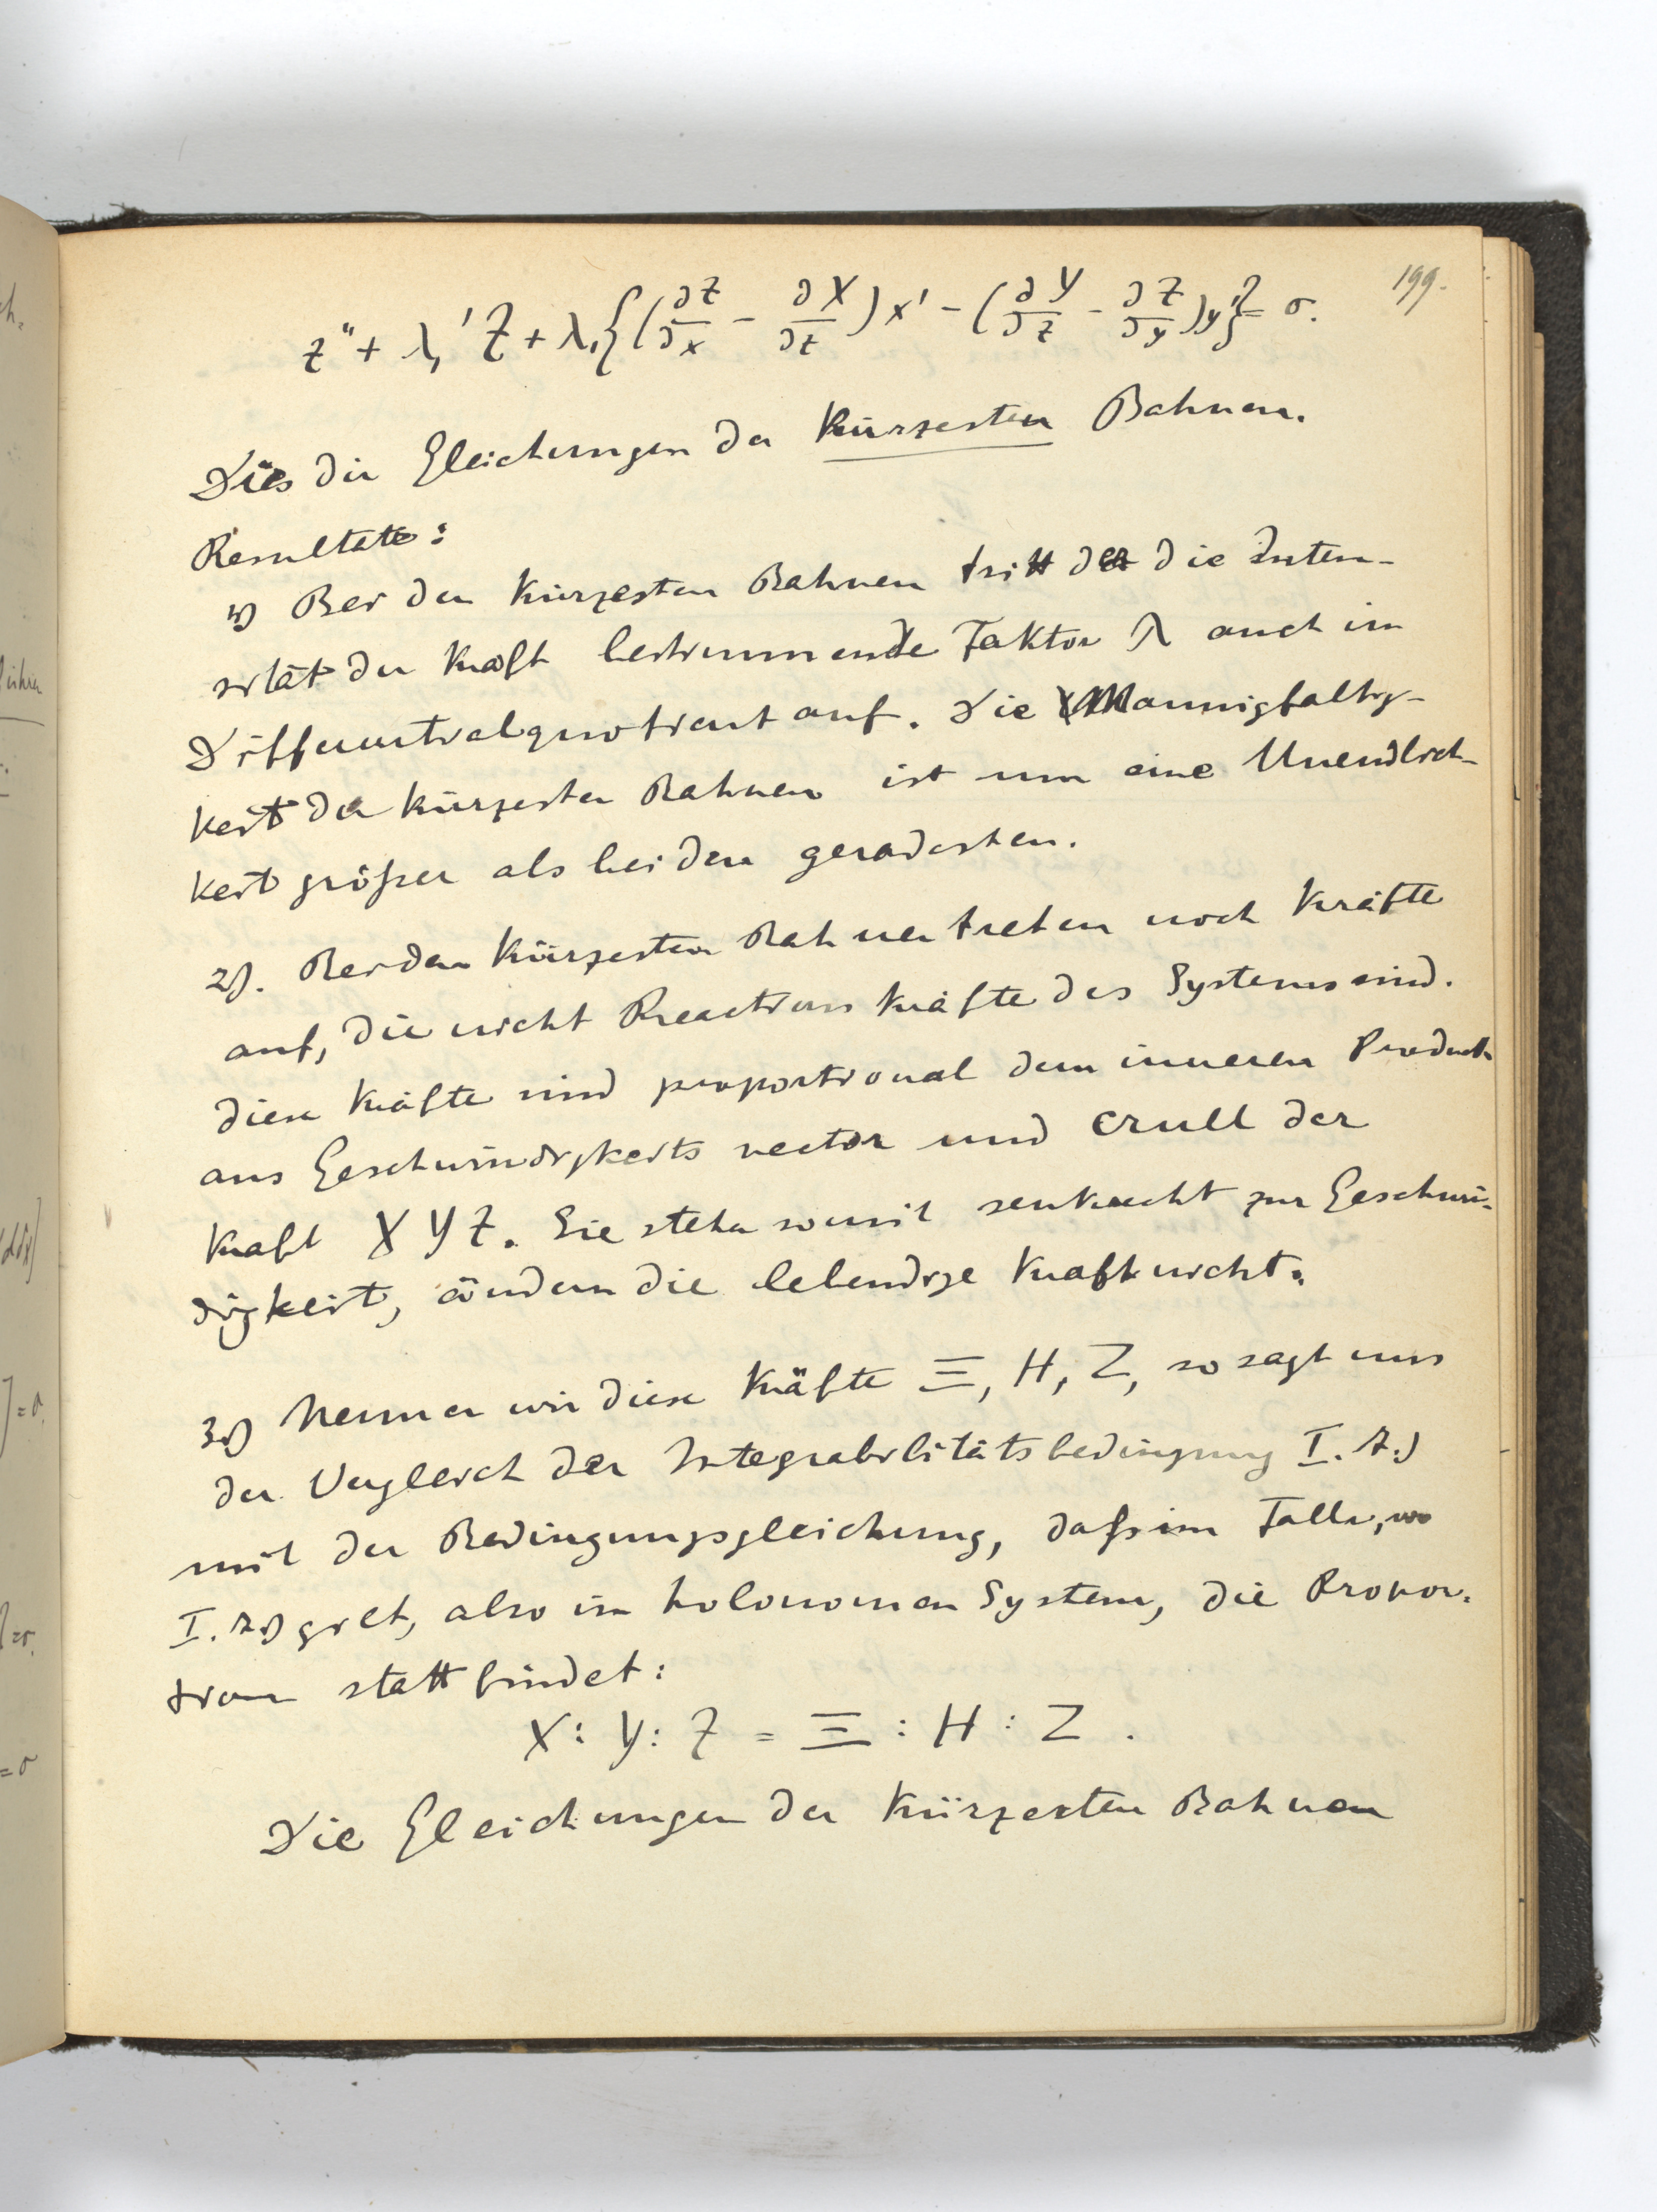 199.
z'' + λ₁' Z + λ₁{(∂Z/∂x − ∂X/∂z) x' − (∂Y/∂z − ∂Z/∂y) y'} = 0.
Dies die Gleichungen der kürzesten Bahnen.
Resultate:
1.) Bei den kürzesten Bahnen tritt der die Inten-
sität der Kraft bestimmende Faktor λ auch im
Differentialquotient auf. Die Mannigfaltig-
keit der kürzesten Bahnen ist um eine Unendlich-
keit größer als bei den geradesten.
2.). Bei den kürzesten Bahnen treten noch Kräfte
auf, die nicht Reactionskräfte des Systems sind.
diese Kräfte sind proportional dem inneren Product
aus Geschwindigkeitsvector und Crull der
Kraft X Y Z. Sie stehn somit senkrecht zur Geschwin-
digkeit, ändern die lebendige Kraft nicht.
3.) Nennen wir diese Kräfte Ξ, H, Z, so sagt uns
der Vergleich der Integrabilitätsbedingung I. 7.)
mit der Bedingungsgleichung, daß im Falle, wo
I. 7.) gilt, also im holonomen System, die Propor-
tion statt findet:
X : Y : Z = Ξ : H : Z .
Die Gleichungen der kürzesten Bahnen